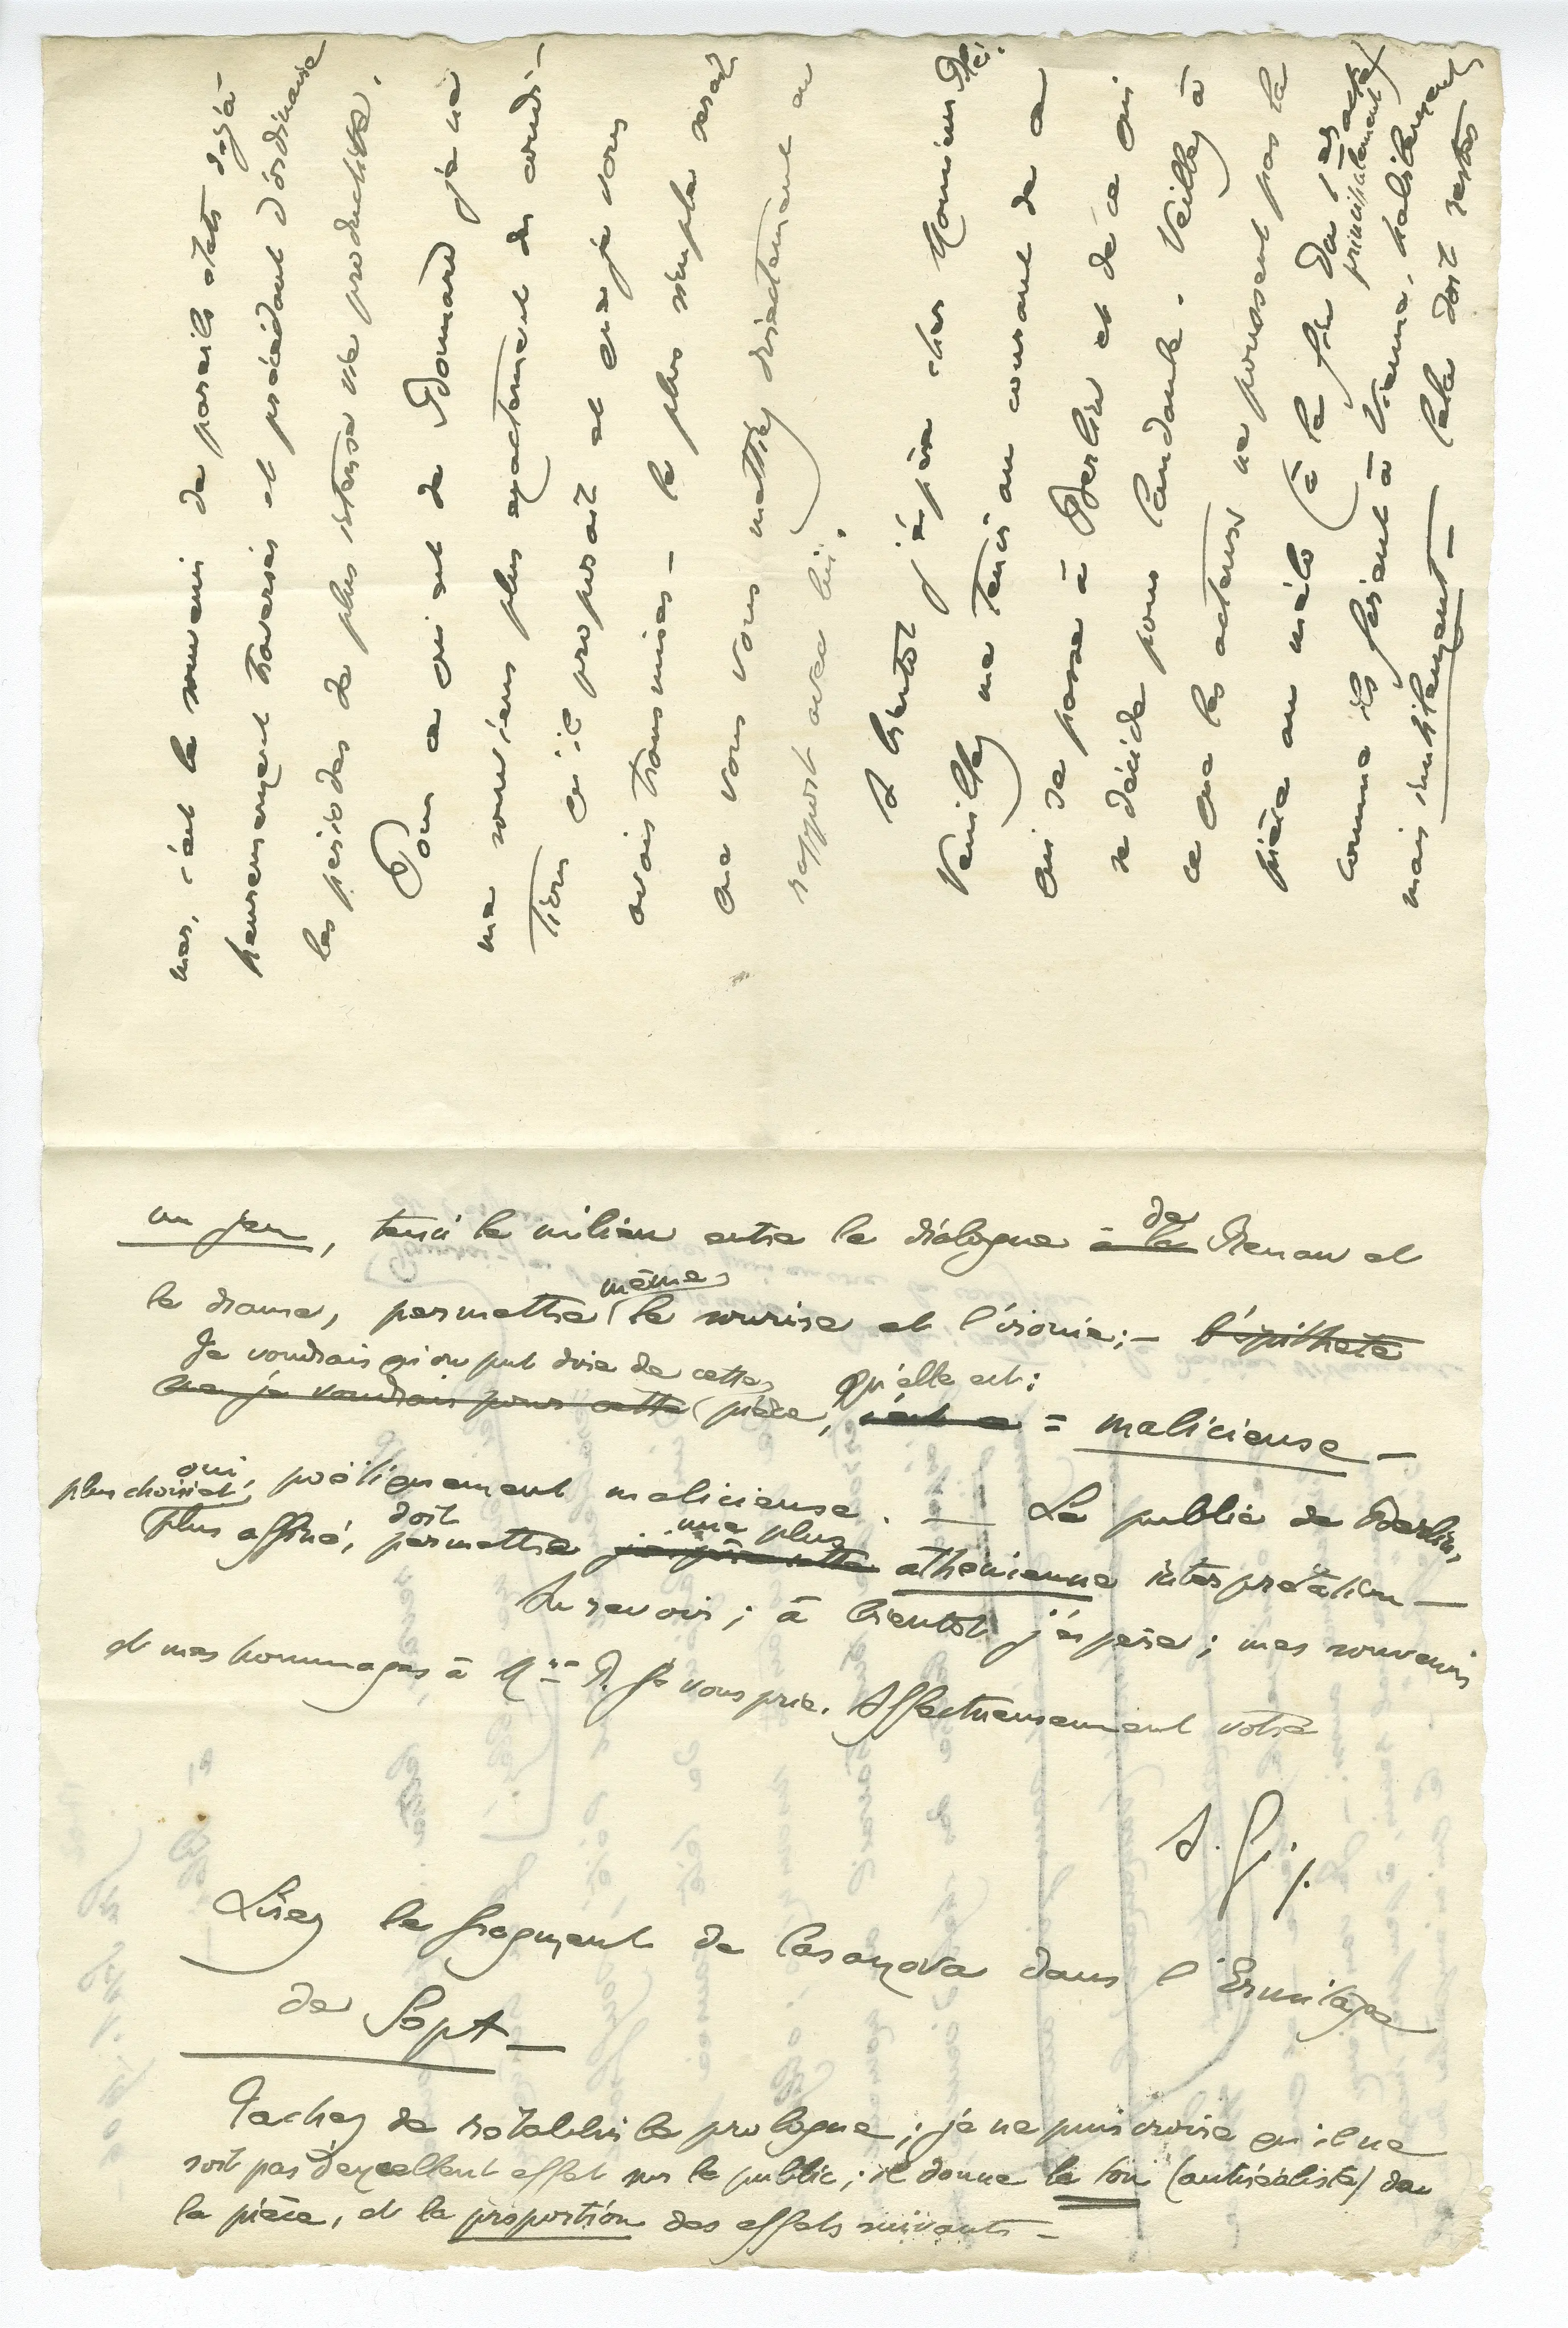 mer, c'est le souvenir de pareils états déjà
heureusement traversés et précédant d'ordinaire
les périodes de plus intense vie productive.
Pour ce qui est de Bonnard je ne
me souviens plus exactement des condi-
tions qu'il proposait et que je vous
avais transmises — le plus simple serait
que vous vous mettiez directement en
rapport avec lui.
A bientôt j'espère cher Monsieur
Veuillez me tenir au courant de ce
qui se passe à Berlin et de ce qui
se décide pour Candaule. Veillez à
ce que les acteurs ne poussent pas la
pièce au mélo (à la fin du 1er acte principalement)
comme ils firent à Vienne, habilement
mais inutilement — Cela doit rester
un jeu, tenir le milieu entre le dialogue à la de Renan et
le drame, permettre même le sourire et l'ironie; — l'épithète
Je voudrais qu'on put dire de cette
que je voudrais pour cette pièce, c'est ce qu'elle est: = malicieuse —
oui, poëtiquement malicieuse. — Le public de Berlin,
plus choisi et
plus affiné, doit permettre une plus athénienne interprétation —
Au revoir; à bientôt j'espère; mes souvenirs
et mes hommages à Mme R. je vous prie. Affectueusement votre
A. G.
Lisez le fragment de Casanova dans l'Ermitage
de Sept —
Tachez de rétablir le prologue; je ne puis croire qu'il ne
soit pas d'excellent effet sur le public; il donne le ton (antiréaliste) de
la pièce, et la proportion des effets suivants —